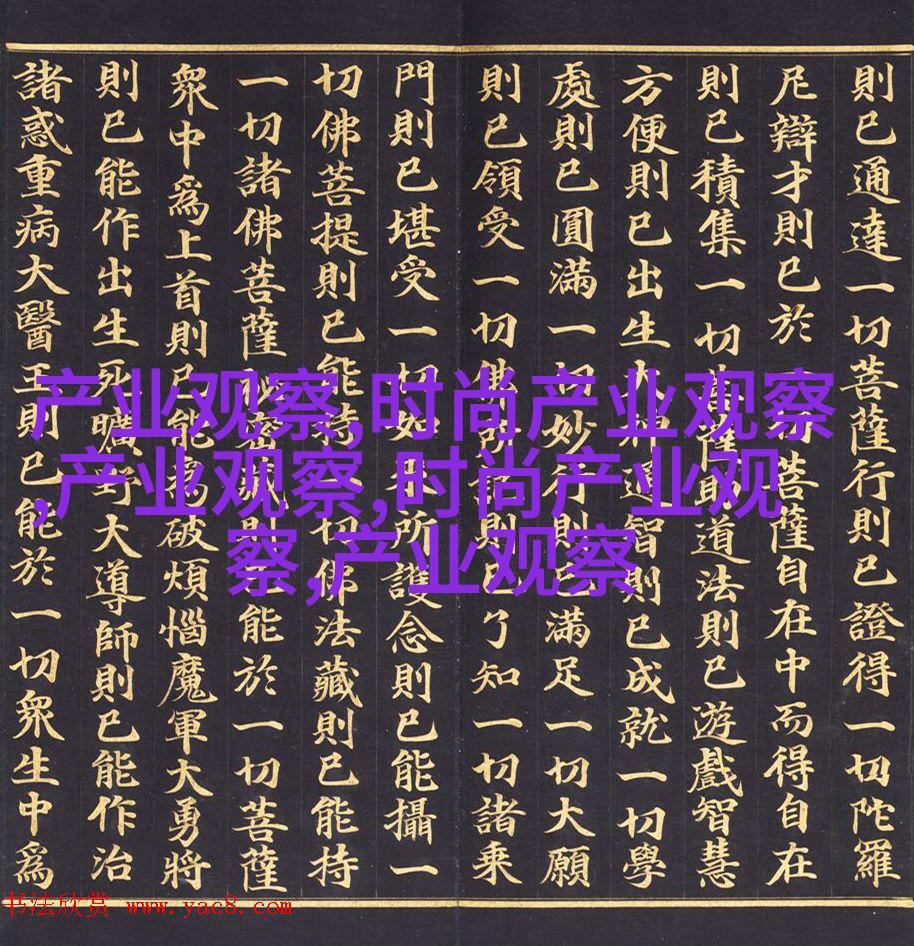 則已通達一切菩薩行則已證得一切陀羅
尼辯才則已於一切菩薩自在中而得自在
則已積集一切菩薩助道法則已遊戲智慧
方便則已出生大神通智則已成就一切學
處則已圓滿一切妙行則已滿足一切大願
則已領受一切佛所記則已了知一切諸乘
門則已堪受一切如來所護念則已能攝一
切佛菩提則已能持一切佛法藏則已能持
一切諸佛菩薩祕密藏則已能於一切菩薩
眾中爲上首則已能爲破煩惱魔軍大勇將
則已能作出生死曠野大導師則已能作治
諸惑重病大醫王則已能於一切眾生中爲
产业观察,时尚产业观察
,产业观察,时尚产业观
察,产业观察
书法欣赏 www.yac8.com